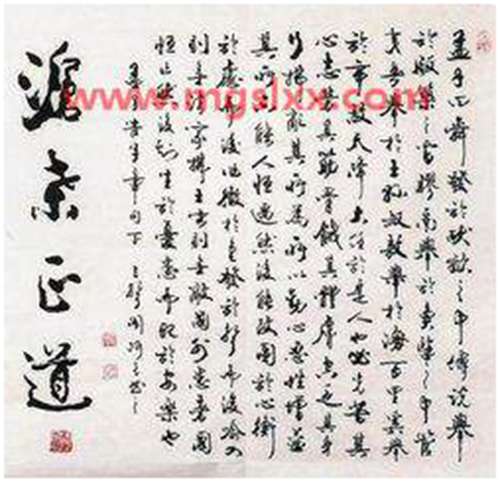 孟子曰舜發於畎畝之中傅說舉
於版築之間膠鬲舉於魚鹽之中管
夷吾舉於士孫叔敖舉於海百里奚舉
於市故天降大任於是人也必先苦其
心志勞其筋骨餓其體膚空乏其身
行拂亂其所為所以動心忍性增益
其所不能人恒過然後能改困於心衡
於慮而後作徵於色發於聲而後喻入
則無法家拂士出則無敵國外患者國
恒亡然後知生於憂患而死於安樂也
孟子告子章句下
滄桑正道
www.mgslxx.com